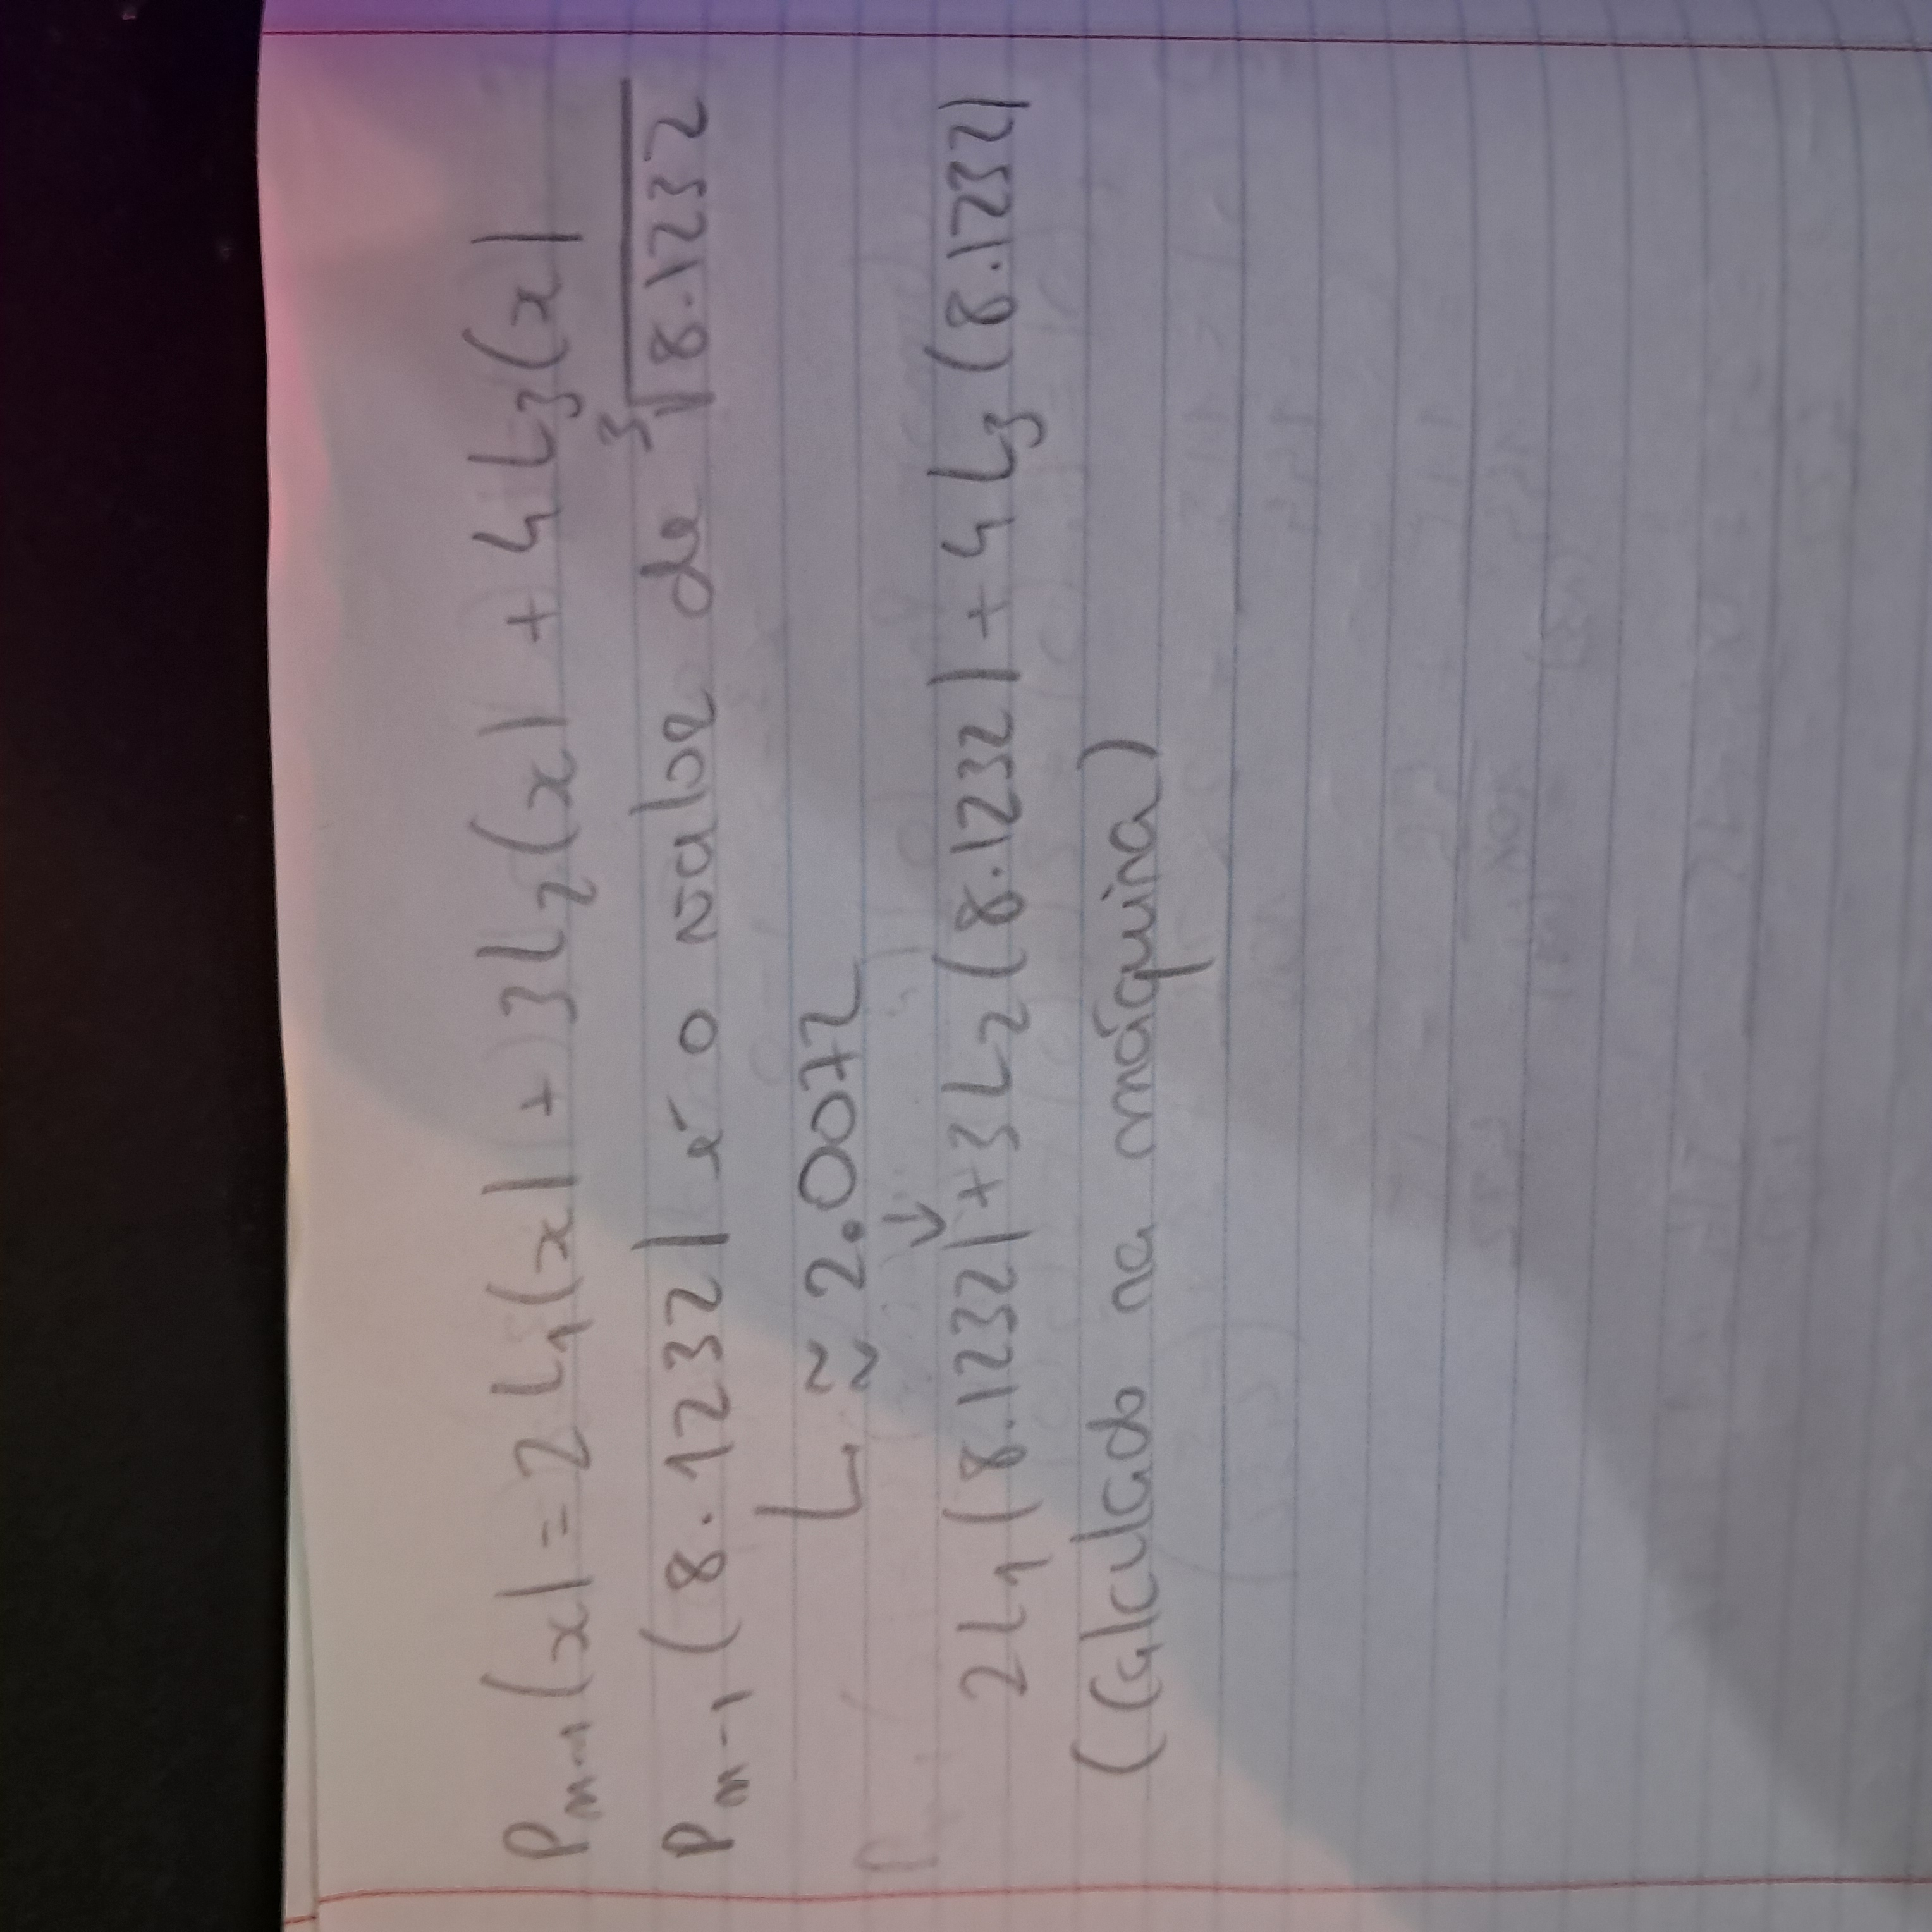 Pₙ₋₁(x) = 2L₁(x) + 3L₂(x) + 4L₃(x)
Pₙ₋₁(8.1232) é o valor de ³√8.1232
L ≈ 2.0072
↓
2L₁(8.1232) + 3L₂(8.1232) + 4L₃(8.1232)
(Calculado na máquina)